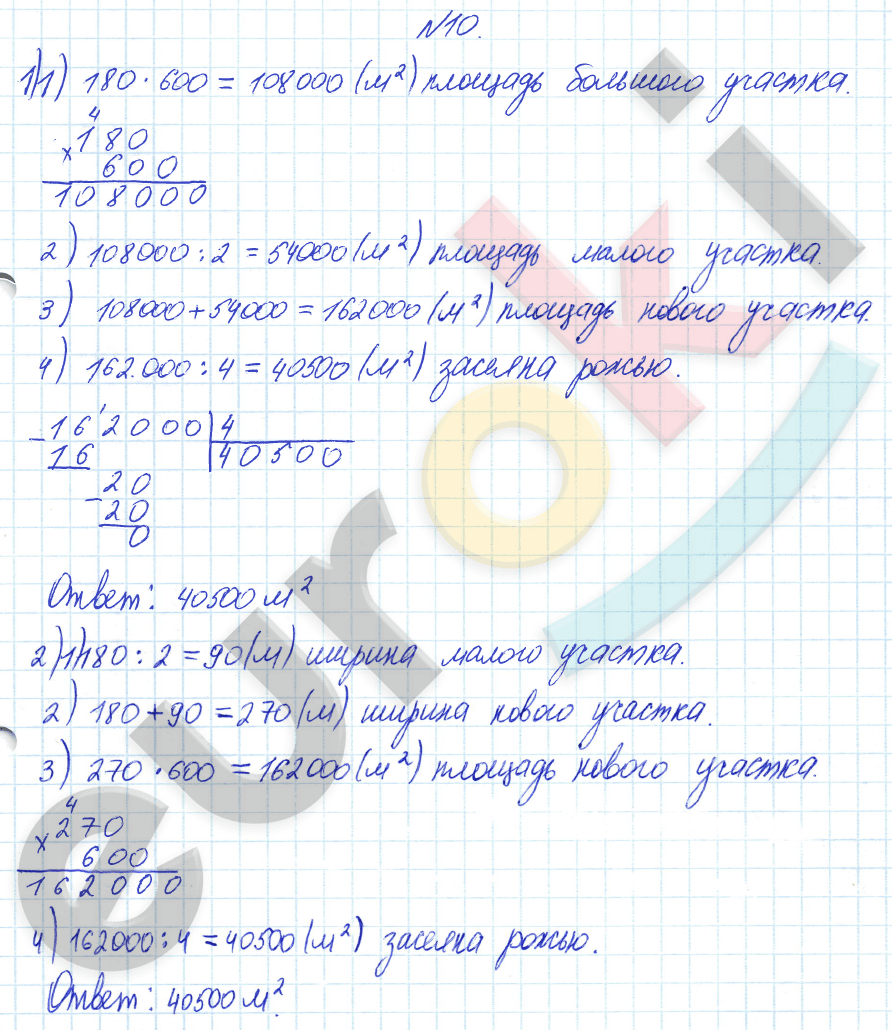 №10.
1) 1) 180 · 600 = 108000 (м²) площадь большого участка.
4
× 180
600
108000
2) 108000 : 2 = 54000 (м²) площадь малого участка.
3) 108000 + 54000 = 162000 (м²) площадь нового участка.
4) 162.000 : 4 = 40500 (м²) засеяна рожью.
- 16'2000 | 4
16 | 40500
- 20
20
0
Ответ: 40500 м²
2) 1) 180 : 2 = 90 (м) ширина малого участка.
2) 180 + 90 = 270 (м) ширина нового участка.
3) 270 · 600 = 162000 (м²) площадь нового участка.
4
× 270
600
162000
4) 162000 : 4 = 40500 (м²) засеяна рожью.
Ответ: 40500 м².
euroki